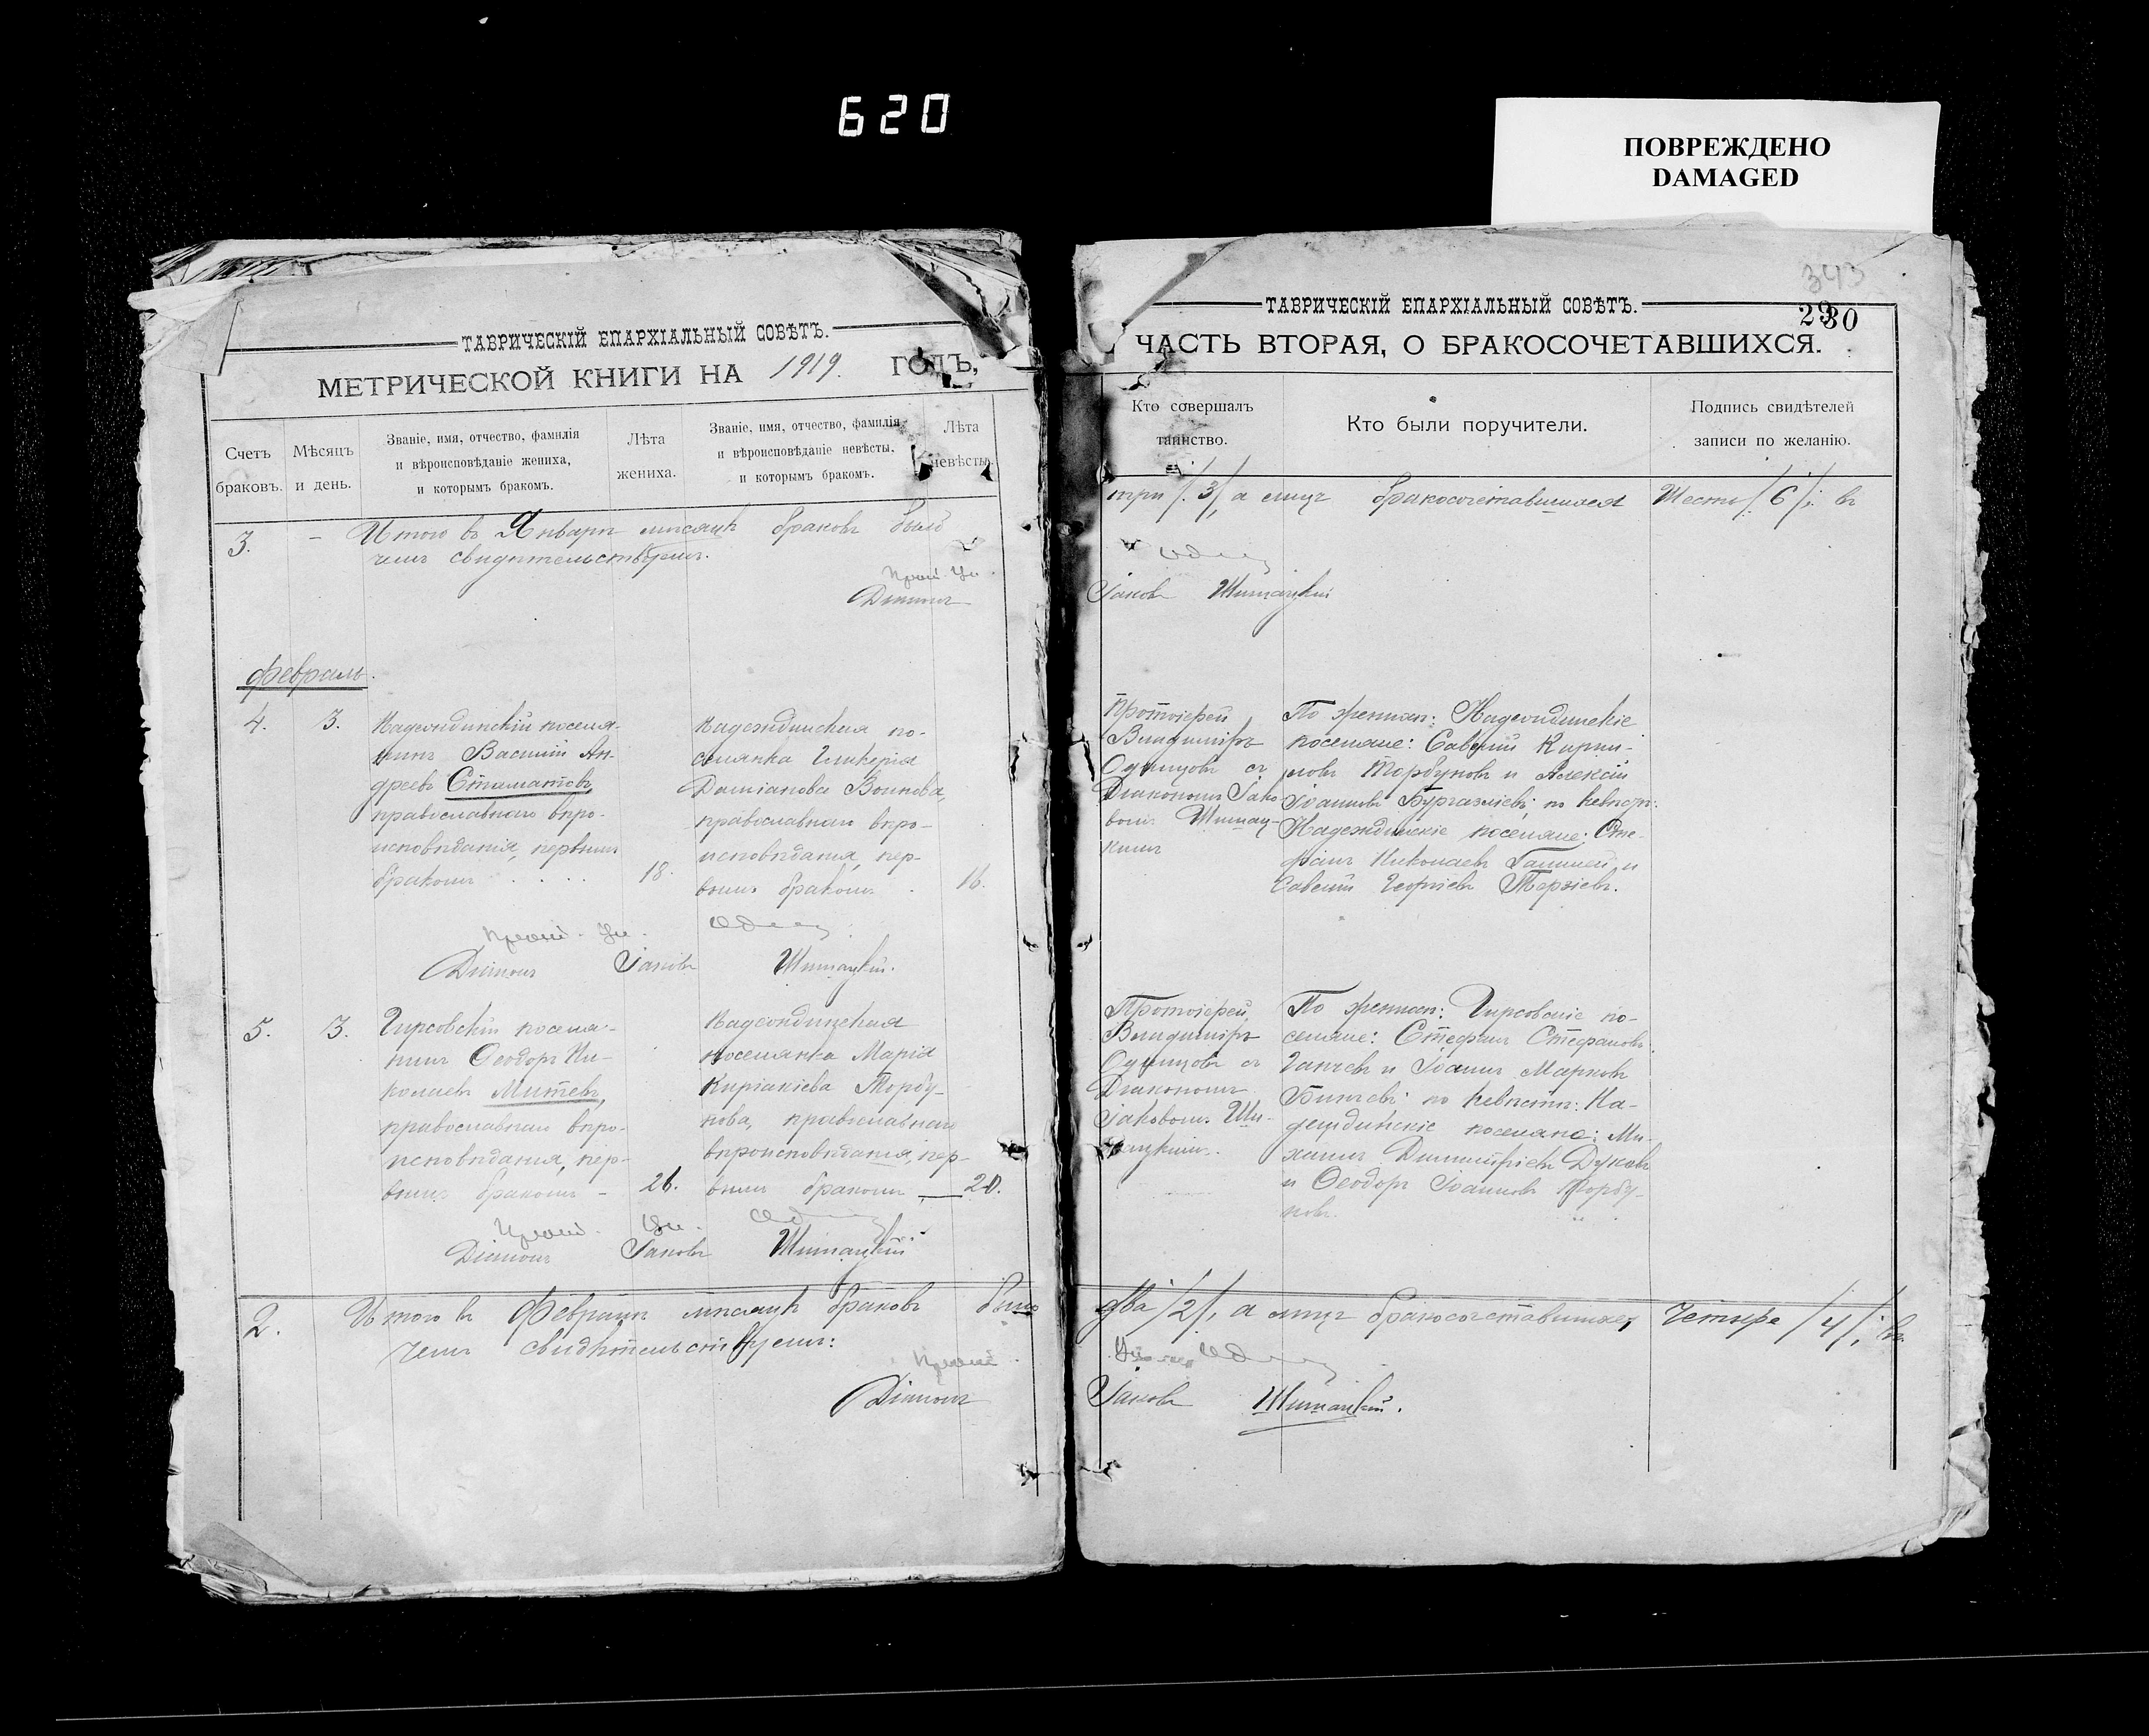 620
ПОВРЕЖДЕНО
DAMAGED
ТАВРИЧЕСКІЙ ЕПАРХІАЛЬНЫЙ СОВѢТЪ.
МЕТРИЧЕСКОЙ КНИГИ НА 1919. ГОДЪ,
Счетъ браковъ.
Мѣсяцъ и день.
Званіе, имя, отчество, фамилія
и вѣроисповѣданіе жениха,
и которымъ бракомъ.
Лѣта
жениха.
Званіе, имя, отчество, фамилія
и вѣроисповѣданіе невѣсты,
и которымъ бракомъ.
Лѣта
невѣсты.
3. - Итого въ Январѣ мѣсяцѣ браковъ было
чемъ свидѣтельствуемъ.
Діаконъ
Февраль.
4. 3.
Надеждинскій поселя-
нинъ Василій Ан-
дреевъ Стаматовъ,
православнаго вѣро-
исповѣданія, первымъ
бракомъ . . . . 18.
Надеждинская по-
селянка Гликерія
Даміанова Воинова,
православнаго вѣро-
исповѣданія, пер-
вымъ бракомъ . 16.
Діаконъ Іаковъ Шимацкій.
5. 3.
Гирсовскій поселя-
нинъ Ѳеодоръ Ни-
колаевъ Митевъ,
православнаго вѣро-
исповѣданія, пер-
вымъ бракомъ - 26.
Надеждинская
поселянка Марія
Киріакіева Торбу-
нова, православнаго
вѣроисповѣданія, пер-
вымъ бракомъ 20.
Діаконъ Іаковъ Шимацкій
2. Итого въ Февралѣ мѣсяцѣ браковъ было
чемъ свидѣтельствуемъ:
Діаконъ
343
29
30
ТАВРИЧЕСКІЙ ЕПАРХІАЛЬНЫЙ СОВѢТЪ.
ЧАСТЬ ВТОРАЯ, О БРАКОСОЧЕТАВШИХСЯ.
Кто совершалъ
таинство.
Кто были поручители.
Подпись свидѣтелей
записи по желанію.
три /3/, а лицъ бракосочетавшихся Шесть /6/; въ
Іаковъ Шимацкій
Протоіерей
Владиміръ
Одинцовъ съ
Діакономъ Іако-
вомъ Шимац-
кимъ
По женихѣ: Надеждинскіе
поселяне: Савелій Кирил-
ловъ Торбуновъ и Алексій
Іоанновъ Бургазліевъ; по невѣстѣ:
Надеждинскіе поселяне: Сте-
фанъ Николаевъ и
Савелій Георгіевъ Терзіевъ.
Протоіерей
Владиміръ
Одинцовъ съ
Діакономъ
Іаковомъ Ши-
мацкимъ.
По женихѣ: Гирсовскіе по-
селяне: Стефанъ Стефановъ
Ганчевъ и Іоаннъ Марковъ
Бинчевъ; по невѣстѣ: На-
деждинскіе поселяне: Ми-
хаилъ Димитріевъ Дуковъ
и Ѳеодоръ Іоанновъ Торбу-
новъ.
два /2/, а лицъ бракосочетавшихся Четыре /4/; въ
Іаковъ Шимацкій.